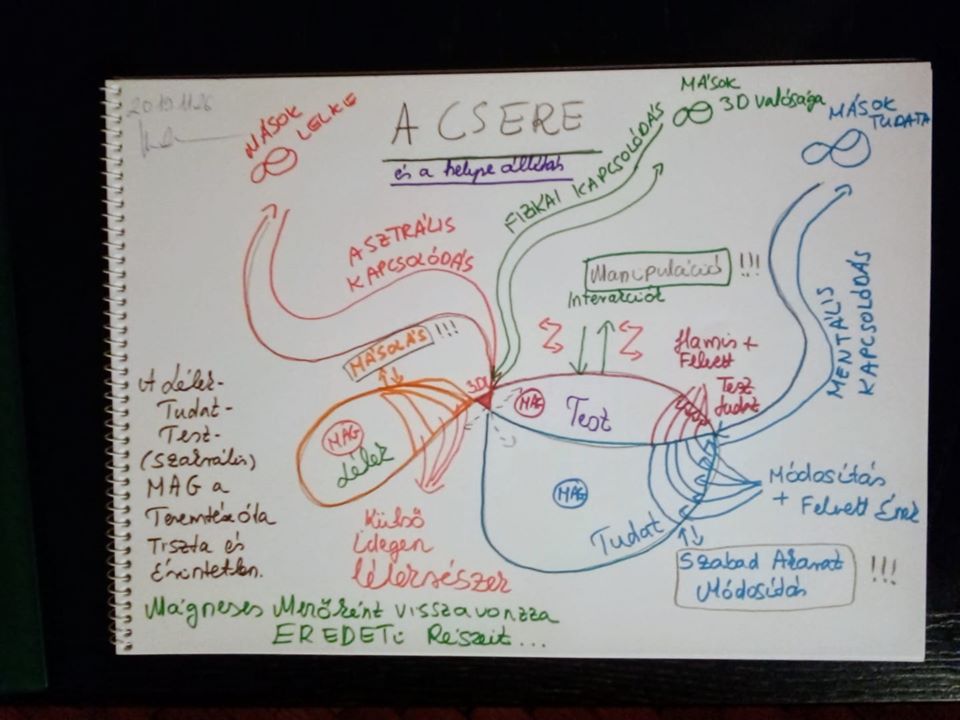 2019.11.26
A CSERE
és a helyre állítás
MÁSOK
LELKE
MÁSOK
3D valósága
MÁSOK
TUDATA
ASZTRÁLIS
KAPCSOLÓDÁS
FIZIKAI KAPCSOLÓDÁS
MENTÁLIS
KAPCSOLÓDÁS
Manipuláció !!!
Interakciók
MÁSOLÁS !!!
Hamis +
Felvett
Test
tudat
MAG
Lélek
MAG
Test
MAG
Tudat
Külső
Idegen
lélekrészek
Módosítás
+ Felvett Ének
Szabad Akarat
Módosítás !!!
A Lélek-
Tudat-
Test-
(Szakrális)
MAG a
Teremtés óta
Tiszta és
Érintetlen.
Mágneses Merőként visszavonzza
EREDETi Részeit...